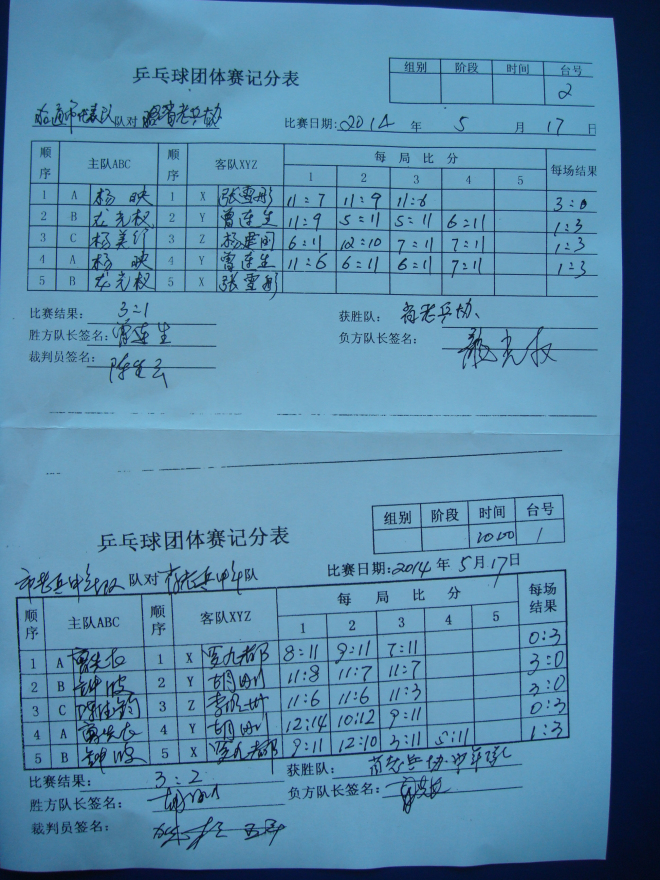 乒乓球团体赛记分表
组别 阶段 时间 台号
2
市代表队 队对 省老兵协
比赛日期: 2014 年 5 月 17 日
顺序 主队ABC 顺序 客队XYZ 每局比分 每场结果
1 2 3 4 5
1 A 杨映 1 X 张雪彤 11:7 11:9 11:6 3:0
2 B 龙光权 2 Y 曾连生 11:9 5:11 5:11 6:11 1:3
3 C 杨美 3 Z 杨建国 6:11 12:10 7:11 7:11 1:3
4 A 杨映 4 Y 曾连生 11:6 6:11 6:11 7:11 1:3
5 B 龙光权 5 X 张雪彤
比赛结果: 3:1 获胜队: 省老兵协
胜方队长签名: 曾连生 负方队长签名: 龙光权
裁判员签名: 陈生云
乒乓球团体赛记分表
组别 阶段 时间 台号
10:00 1
市老兵中年队 队对 省老兵中年 队
比赛日期: 2014 年 5 月 17 日
顺序 主队ABC 顺序 客队XYZ 每局比分 每场结果
1 2 3 4 5
1 A 1 X 罗九都 8:11 9:11 7:11 0:3
2 B 钟波 2 Y 胡刚 11:8 11:7 11:7 3:0
3 C 3 Z 11:6 11:6 11:3 3:0
4 A 4 Y 胡刚 12:14 10:12 9:11 0:3
5 B 钟波 5 X 罗九都 9:11 12:10 3:11 5:11 1:3
比赛结果: 3:2 获胜队: 省老兵协中年队
胜方队长签名: 胡刚 负方队长签名:
裁判员签名: